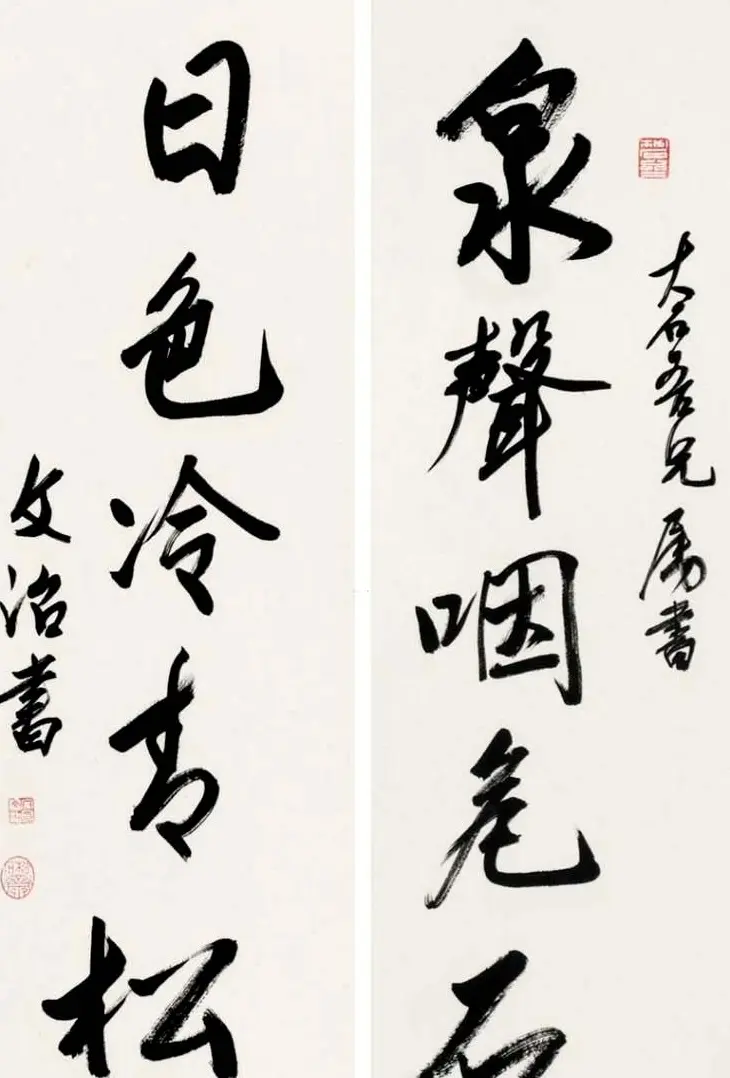 大石吾兄属書
泉聲咽危石
日色冷青松
文治書